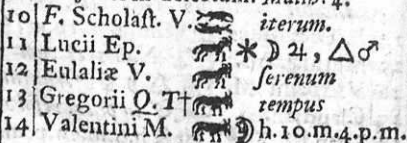 10 F. Scholaſt. V. iterum.
11 Lucii Ep. ⚹ ☽ ♃, △ ♂
12 Eulaliæ V. ſerenum
13 Gregorii Q. T† tempus
14 Valentini M. ☽ h. 10. m. 4. p. m.